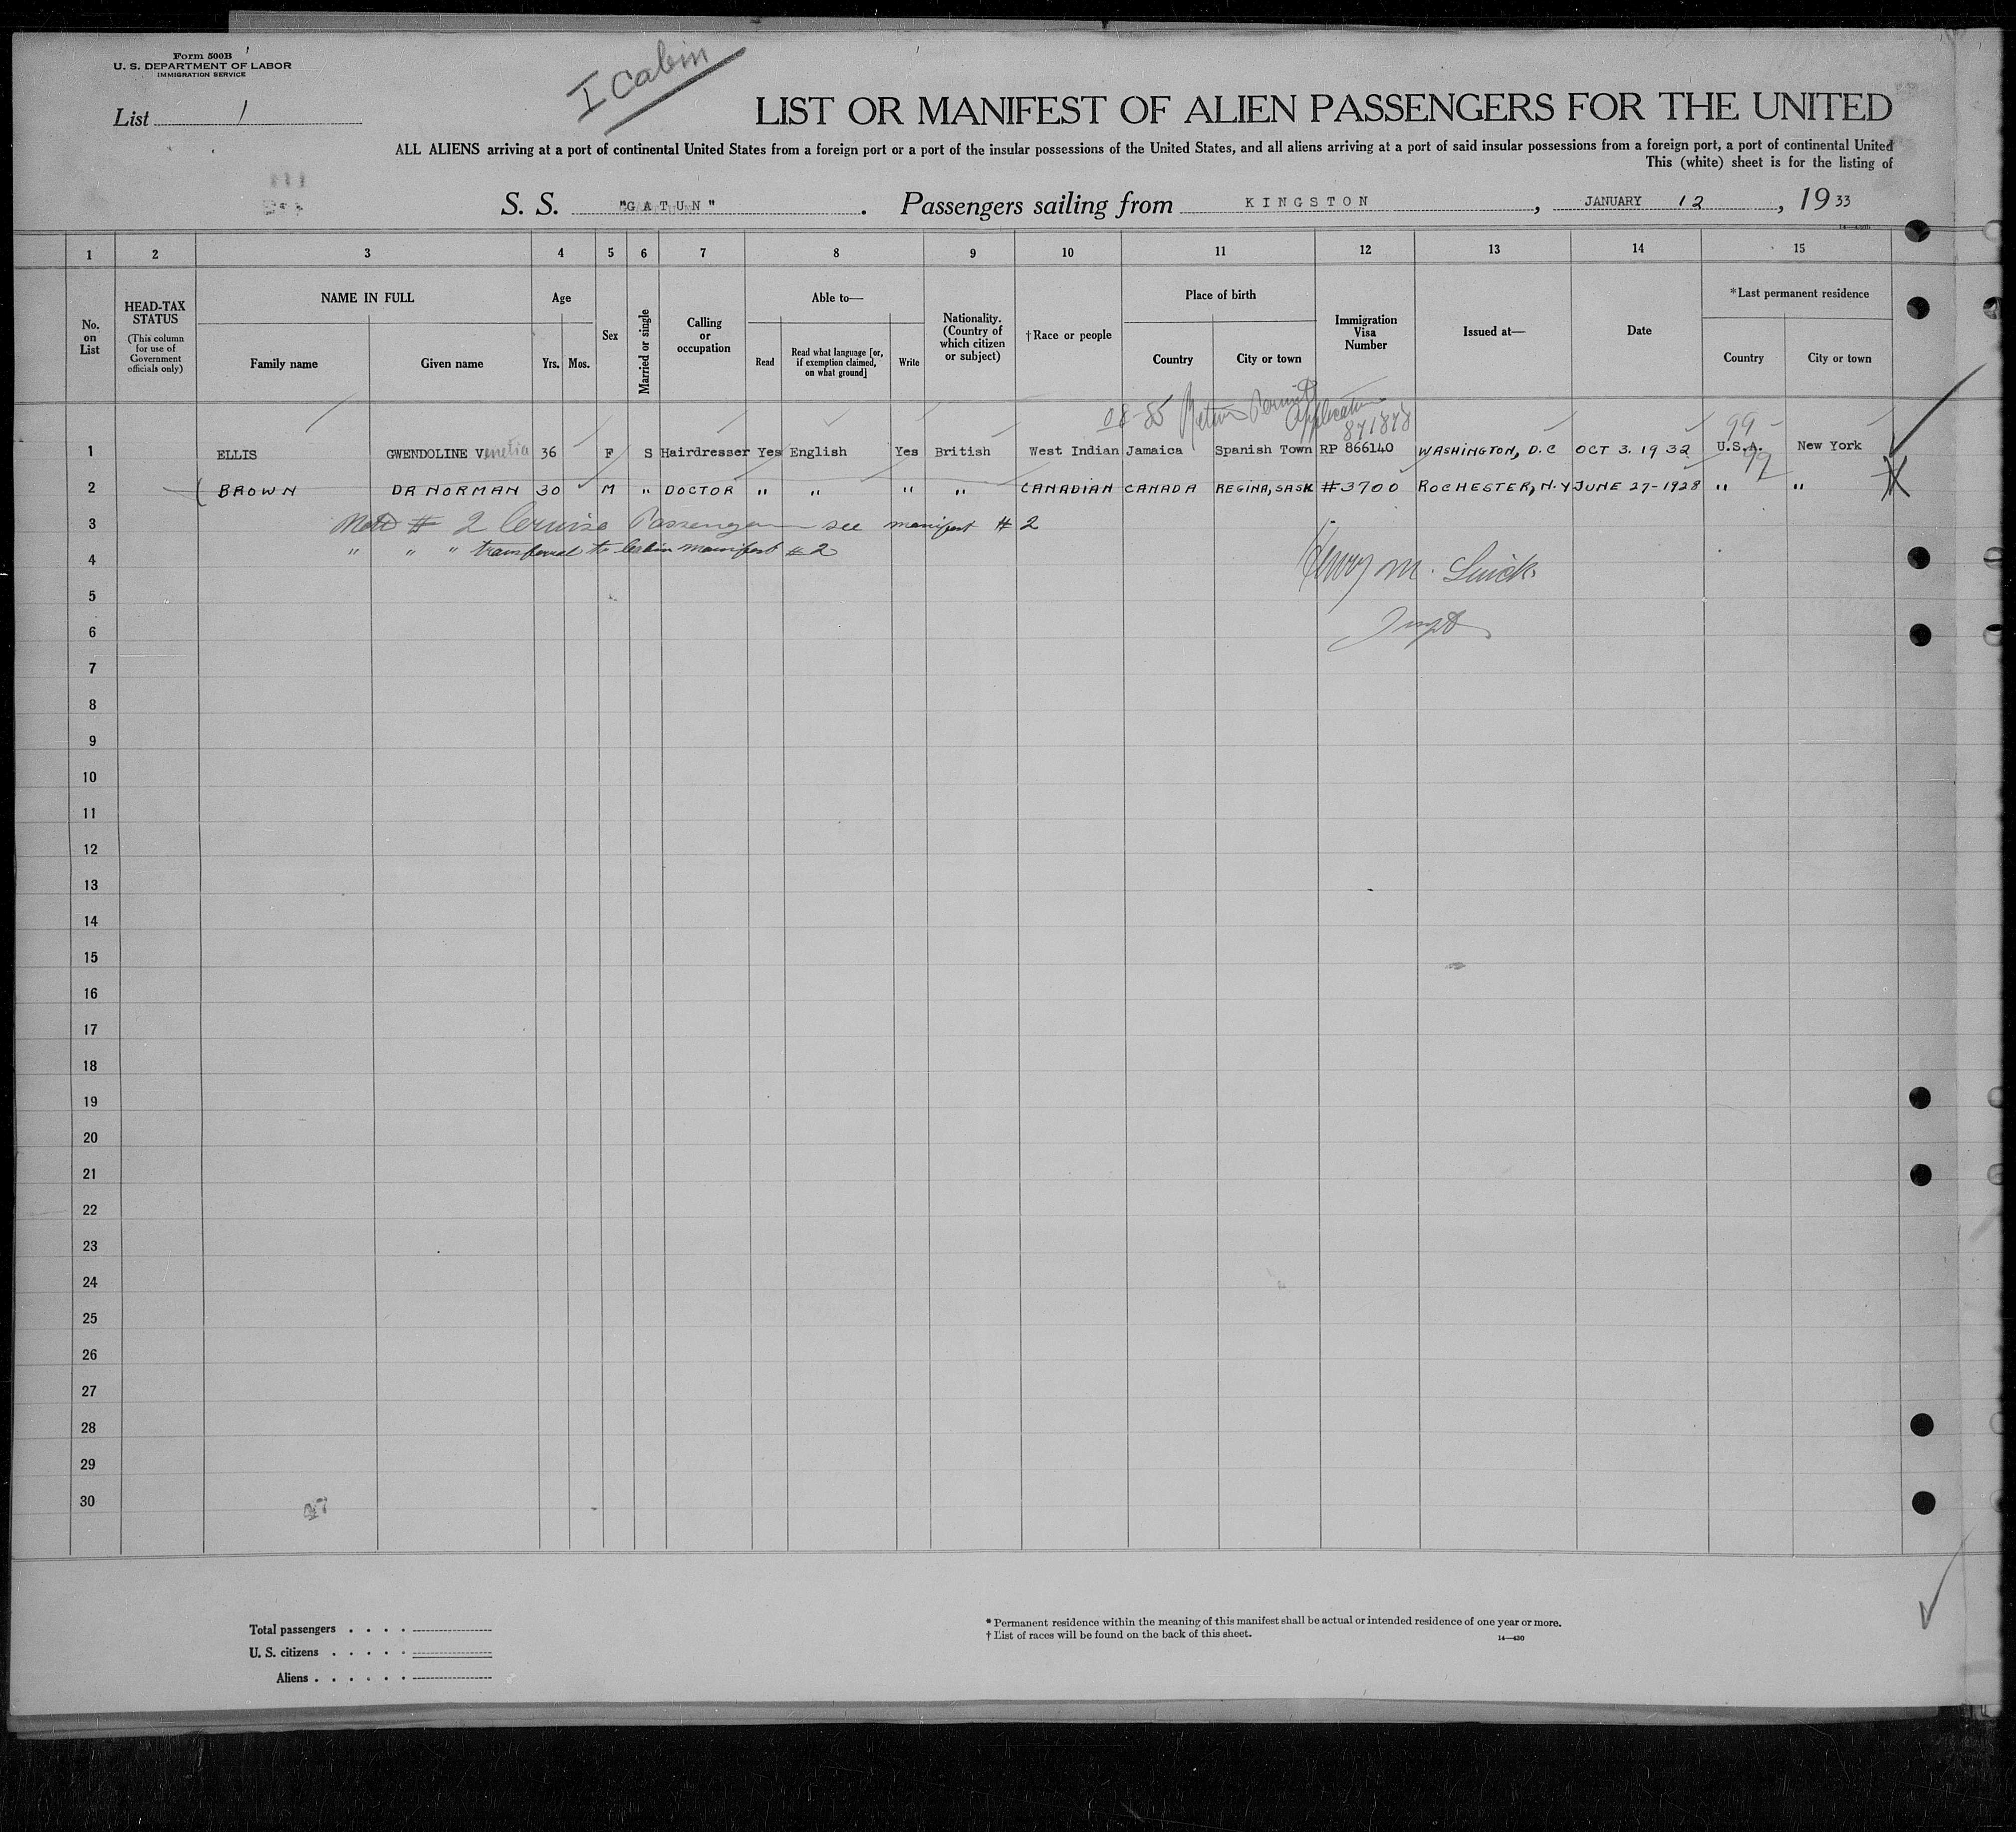 Form 500B
U. S. DEPARTMENT OF LABOR
IMMIGRATION SERVICE
List 1
I Cabin
LIST OR MANIFEST OF ALIEN PASSENGERS FOR THE UNITED
ALL ALIENS arriving at a port of continental United States from a foreign port or a port of the insular possessions of the United States, and all aliens arriving at a port of said insular possessions from a foreign port, a port of continental United
This (white) sheet is for the listing of
S. S. "GATUN". Passengers sailing from KINGSTON, JANUARY 12, 19 33
1 2 3 4 5 6 7 8 9 10 11 12 13 14 15
No. on List
HEAD-TAX STATUS
(This column for use of Government officials only)
NAME IN FULL
Family name
Given name
Age
Yrs. Mos.
Sex
Married or single
Calling or occupation
Able to—
Read
Read what language [or, if exemption claimed, on what ground]
Write
Nationality. (Country of which citizen or subject)
†Race or people
Place of birth
Country
City or town
Immigration Visa Number
Issued at—
Date
*Last permanent residence
Country
City or town
Return Permit
Application
871878
99
1 ELLIS GWENDOLINE V 36 F S Hairdresser Yes English Yes British West Indian Jamaica Spanish Town RP 866140 WASHINGTON, D.C OCT 3. 1932 U.S.A. New York
2 BROWN DR NORMAN 30 M " DOCTOR " " " " CANADIAN CANADA REGINA, SASK #3700 ROCHESTER, N.Y JUNE 27-1928 " "
3 # 2 Cruise Passenger see manifest # 2
4 " " " transferred to Cabin manifest # 2
Henry M.
5
6
7
8
9
10
11
12
13
14
15
16
17
18
19
20
21
22
23
24
25
26
27
28
29
30
Total passengers . . . .
U. S. citizens . . . . .
Aliens . . . . . .
* Permanent residence within the meaning of this manifest shall be actual or intended residence of one year or more.
† List of races will be found on the back of this sheet.
14—430